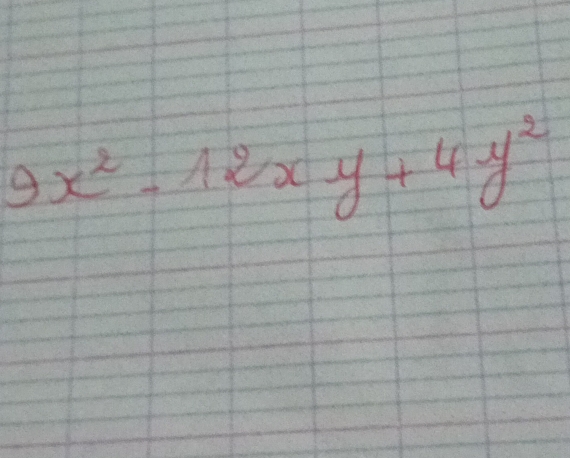 9x² - 12xy + 4y²